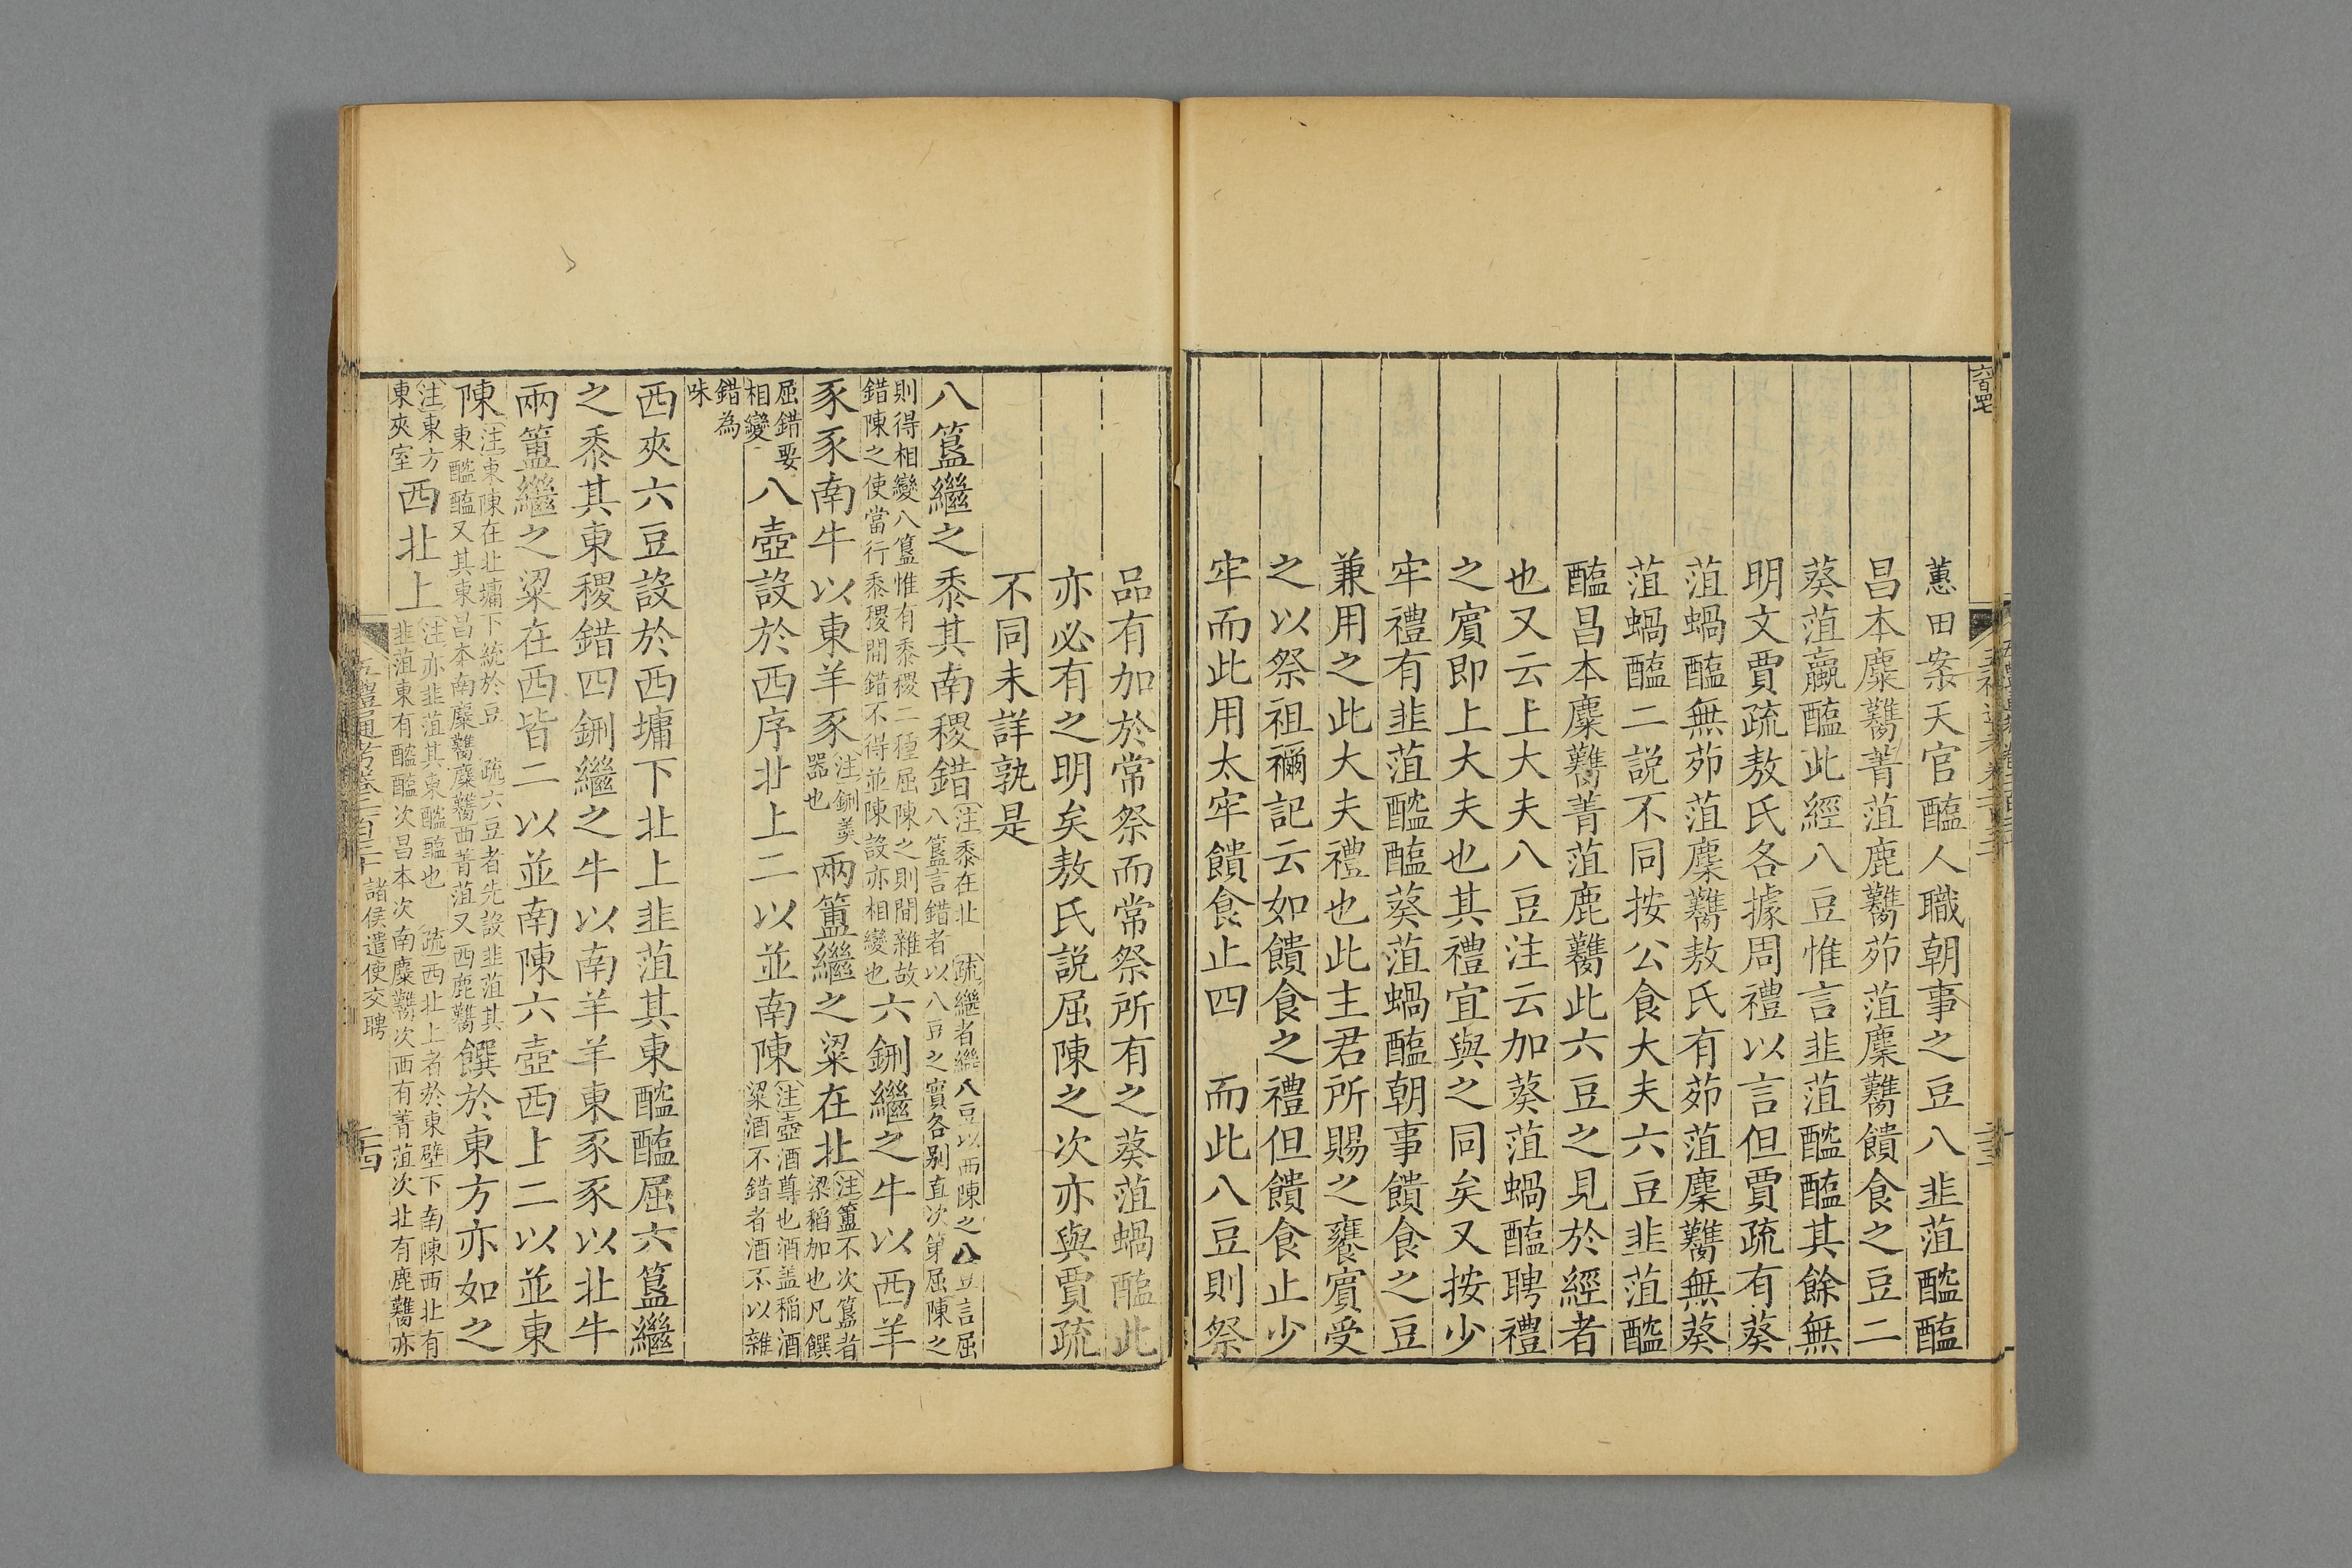 蕙田案天官醢人職朝事之豆八韭菹醓醢
昌本麋臡菁菹鹿臡茆菹麇臡饋食之豆二
葵菹蠃醢此經八豆惟言韭菹醓醢其餘無
明文賈疏敖氏各據周禮以言但賈疏有葵
菹蝸醢無茆菹麇臡敖氏有茆菹麇臡無葵
菹蝸醢二説不同按公食大夫六豆韭菹醓
醢昌本麋臡菁菹鹿臡此六豆之見於經者
也又云上大夫八豆注云加葵菹蝸醢聘禮
之賓即上大夫也其禮宜與之同矣又按少
牢禮有韭菹醓醢葵菹蝸醢朝事饋食之豆
兼用之此大夫禮也此主君所賜之饔賓受
之以祭祖禰記云如饋食之禮但饋食止少
牢而此用太牢饋食止四 而此八豆則祭
品有加於常祭而常祭所有之葵菹蝸醢此
亦必有之明矣敖氏説屈陳之次亦與賈疏
不同未詳孰是
八簋繼之黍其南稷錯注黍在北 疏繼者繼八豆以西陳之八豆言屈
八簋言錯者以八豆之實各别直次第屈陳之
則得相變八簋惟有黍稷二種屈陳之則間雜故
錯陳之使當行黍稷間錯不得並陳設亦相變也六鉶繼之牛以西羊
豕豕南牛以東羊豕注鉶羹
器也兩簠繼之粱在北注簠不次簋者
粱稻加也凡饌
屈錯要
相變八壺設於西序北上二以並南陳注壺酒尊也酒盖稻酒
粱酒不錯者酒不以雜
錯為
味
西夾六豆設於西墉下北上韭菹其東醓醢屈六簋繼
之黍其東稷錯四鉶繼之牛以南羊羊東豕豕以北牛
兩簠繼之粱在西皆二以並南陳六壺西上二以並東
陳注東陳在北墉下統於豆 疏六豆者先設韭菹其
東醓醢又其東昌本南麋臡麋臡西菁菹又西鹿臡饌於東方亦如之
注東方
東夾室西北上注亦韭菹其東醓醢也 疏西北上者於東壁下南陳西北有
韭菹東有醓醢次昌本次南麋臡次西有菁菹次北有鹿臡亦
五禮通考卷二百三十 諸侯遣使交聘 二四